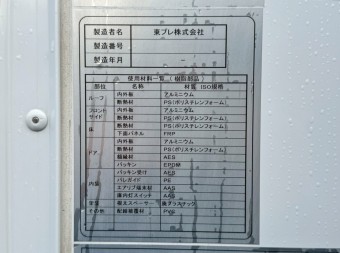 製造者名 東プレ株式会社
製造番号
製造年月
使用材料一覧 (樹脂部品)
部位 名称 材質 ISO規格
ルーフ 内外板 アルミニウム
断熱材 PS(ポリスチレンフォーム)
フロント サイド 内外板 アルミニウム
断熱材 PS(ポリスチレンフォーム)
床 断熱材 PS(ポリスチレンフォーム)
下面パネル FRP
ドア 内外板 アルミニウム
断熱材 PS(ポリスチレンフォーム)
AES
パッキン EPDM
パッキン受け
内装 PE
エアリブ端木材 AAS
庫内灯スイッチ AAS
スペーサー
その他 PVC